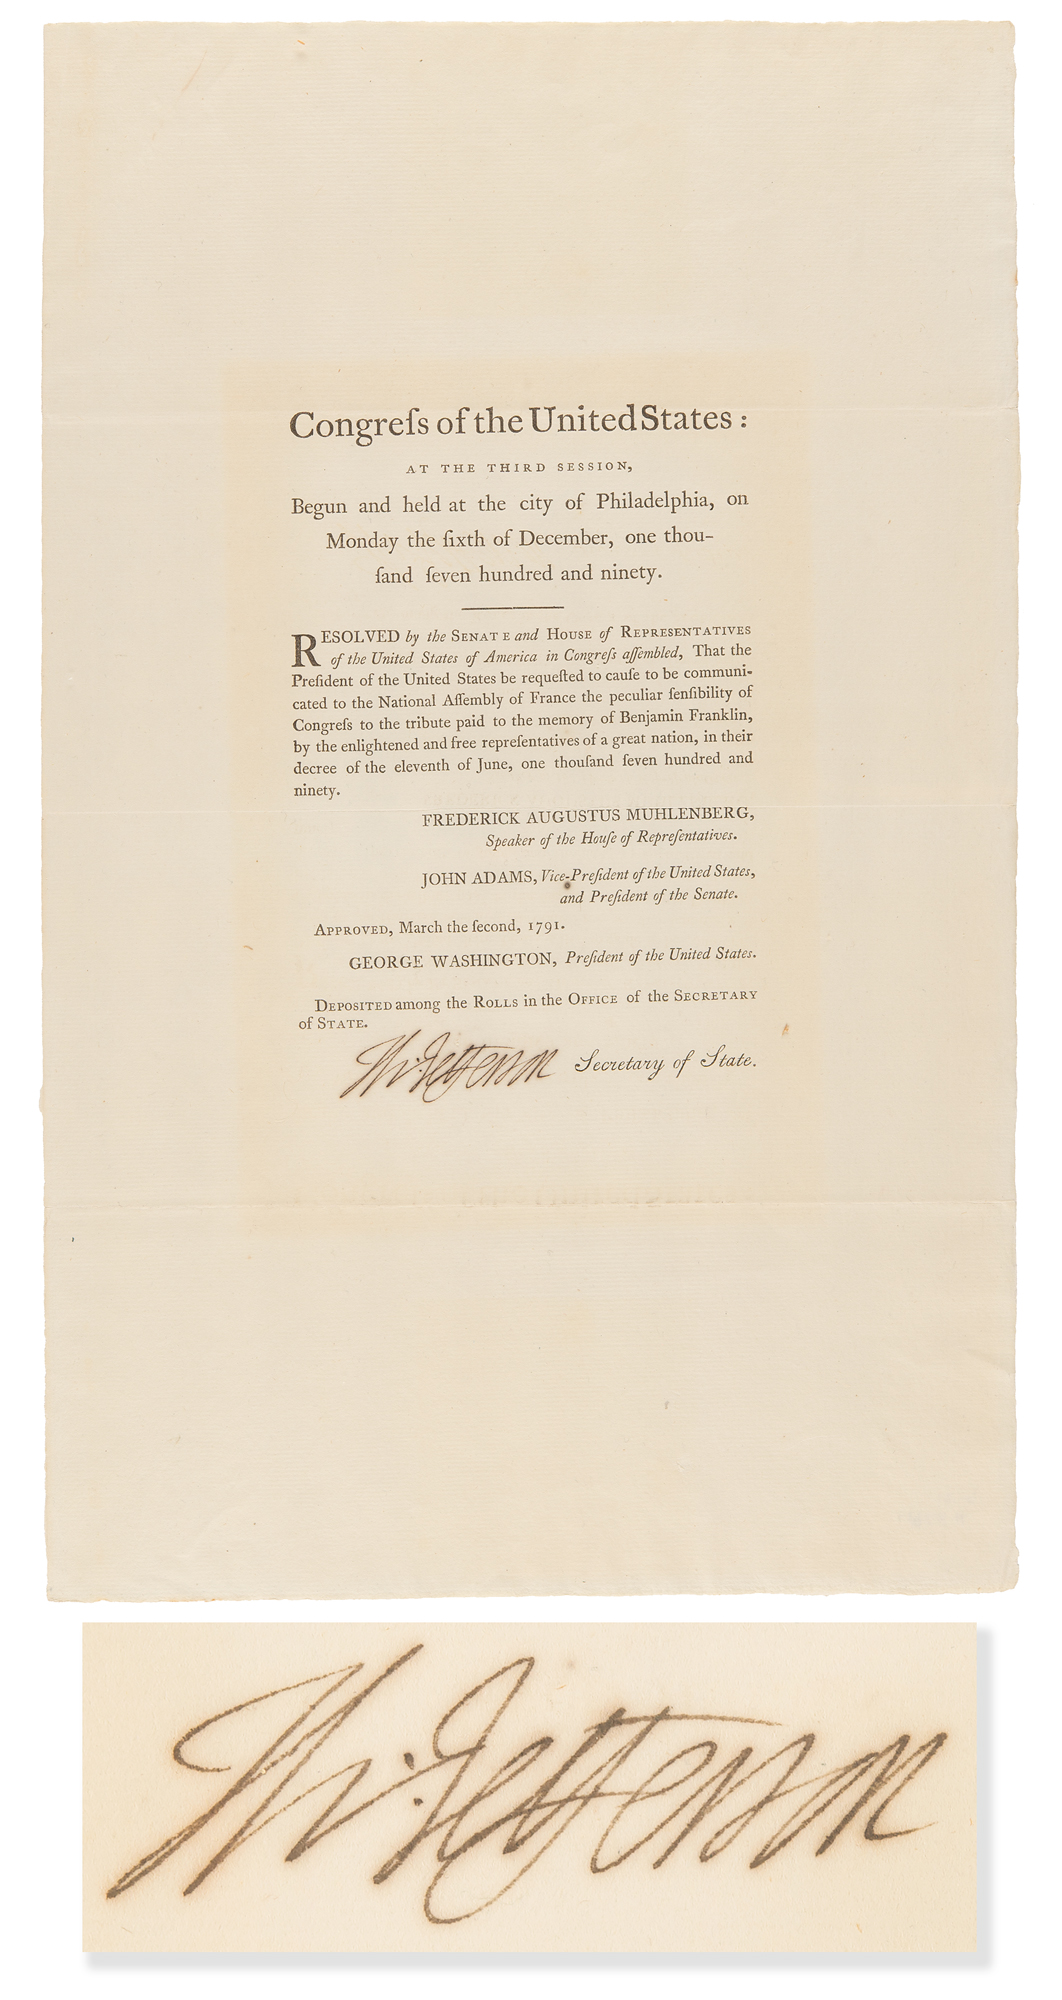 Congreſs of the United States:
AT THE THIRD SESSION,
Begun and held at the city of Philadelphia, on
Monday the ſixth of December, one thou-
ſand ſeven hundred and ninety.
RESOLVED by the SENATE and HOUSE of REPRESENTATIVES
of the United States of America in Congreſs aſſembled, That the
Preſident of the United States be requeſted to cauſe to be communi-
cated to the National Aſſembly of France the peculiar ſenſibility of
Congreſs to the tribute paid to the memory of Benjamin Franklin,
by the enlightened and free repreſentatives of a great nation, in their
decree of the eleventh of June, one thouſand ſeven hundred and
ninety.
FREDERICK AUGUSTUS MUHLENBERG,
Speaker of the Houſe of Repreſentatives.
JOHN ADAMS, Vice-Preſident of the United States,
and Preſident of the Senate.
APPROVED, March the ſecond, 1791.
GEORGE WASHINGTON, Preſident of the United States.
DEPOSITED among the ROLLS in the OFFICE of the SECRETARY
of STATE.
Th: Jefferson Secretary of State.
Th: Jefferson